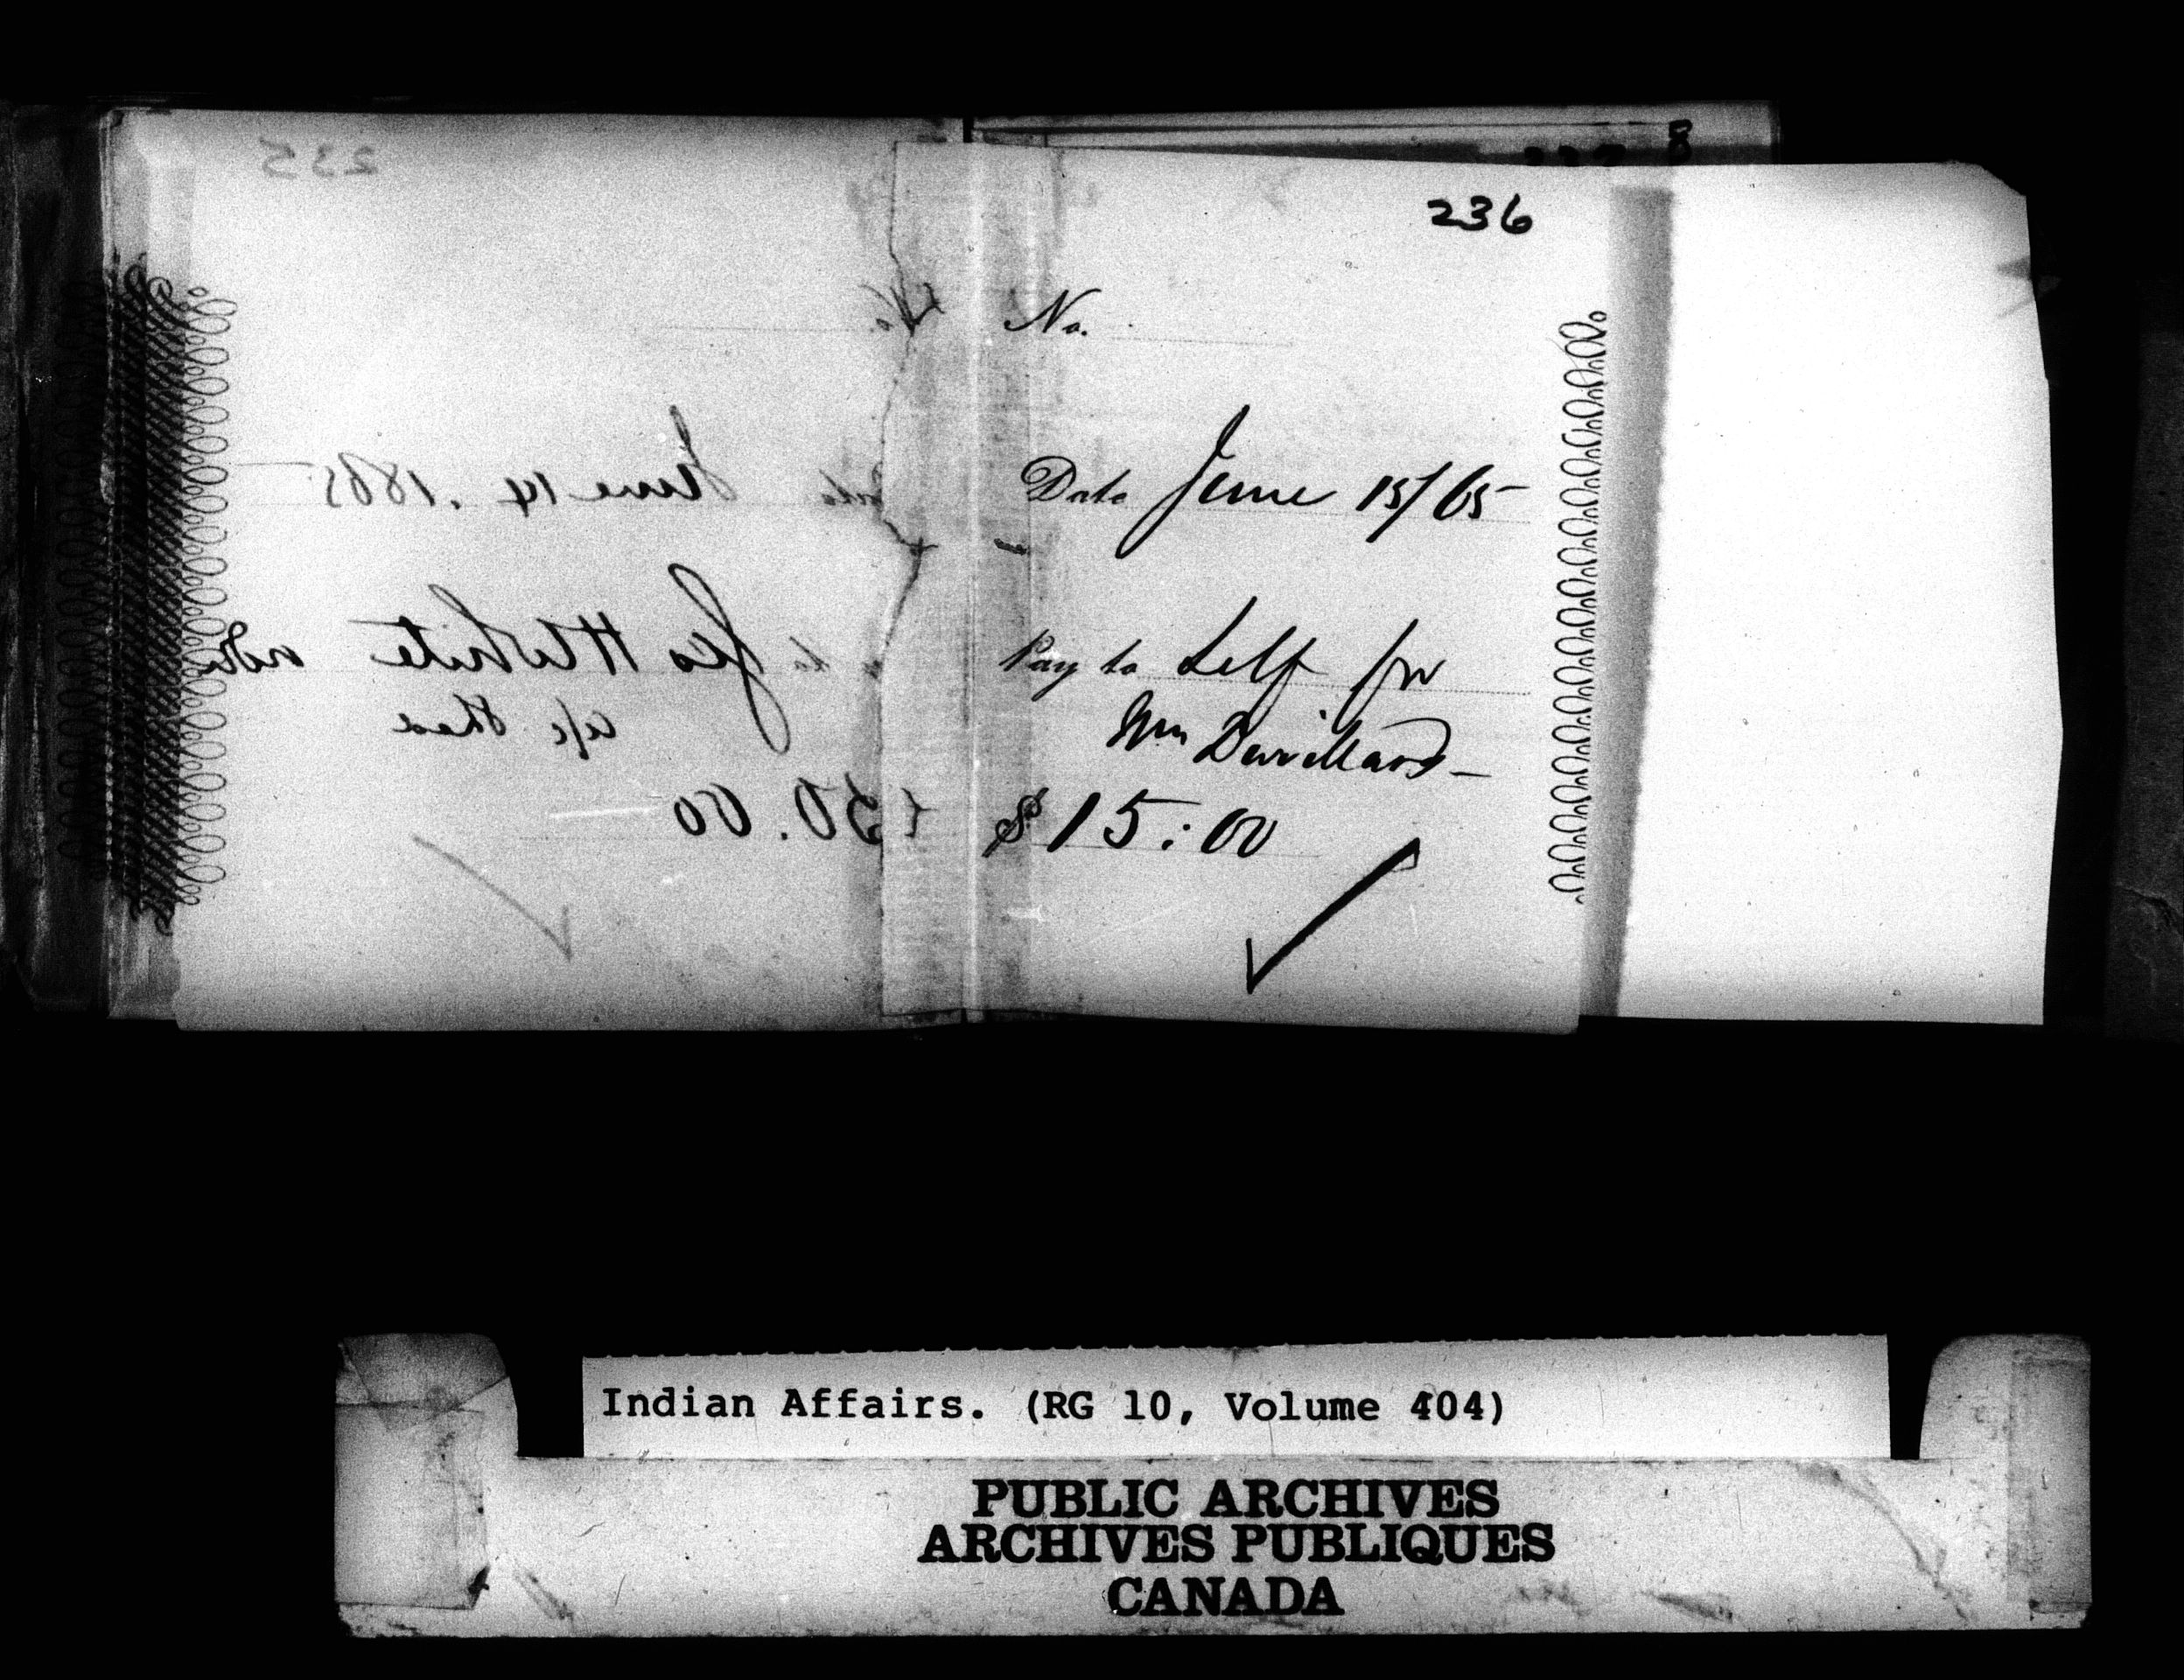 235
No.
Date June 14. 1865
to Geo H White
a/c
$50.00
236
No.
Date June 15/65
Pay to Self for
Wm
$15:00
Indian Affairs. (RG 10, Volume 404)
PUBLIC ARCHIVES
ARCHIVES PUBLIQUES
CANADA